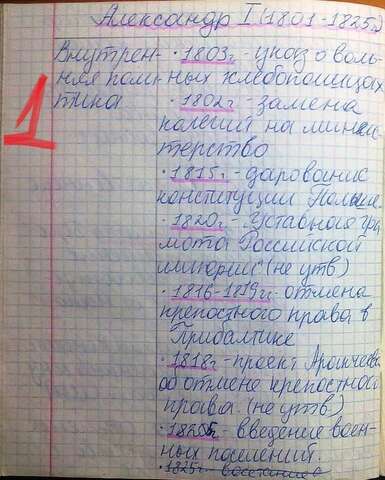 Александр I (1801-1825г.)
Внутрен- · 1803г - указ о воль-
няя поли- ных хлебопашцах
тика · 1802г - замена
1
колегий на минис
терство
· 1815г - дарование
конституции Польше
· 1820г - Уставная гра
мота Российской
империи" (не утв)
· 1816-1819гг - отмена
крепостного права в
Прибалтике
· 1818г - проект Аракчеева
об отмене крепостного
права (не утв)
· 1825г - введение воен-
ных поселений.
· 1825г - восстание